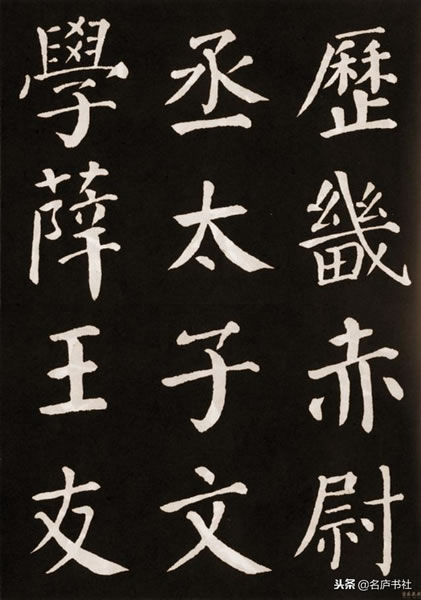 歷畿赤尉
丞太子文
學薛王友
头条 @名庐书社